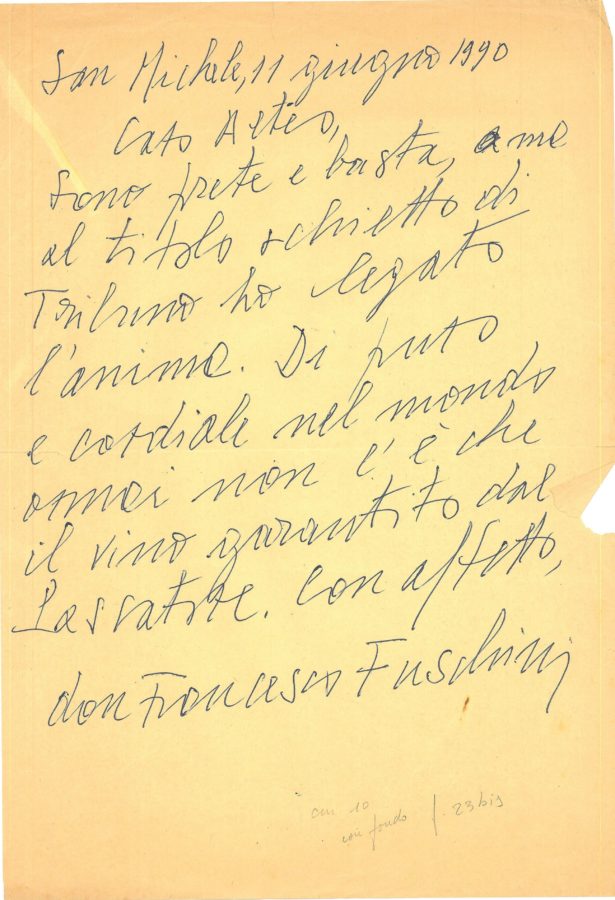 San Michele, 11 giugno 1990
Caro Alteo,
Sono prete e basta, ma
al titolo schietto di
Tribuno ho legato
l'anima. Di puro
e cordiale nel mondo
ormai non c'è che
il vino garantito dal
Passatore. Con affetto,
don Francesco Fuschini
cm 10
con fondo f. 23bis